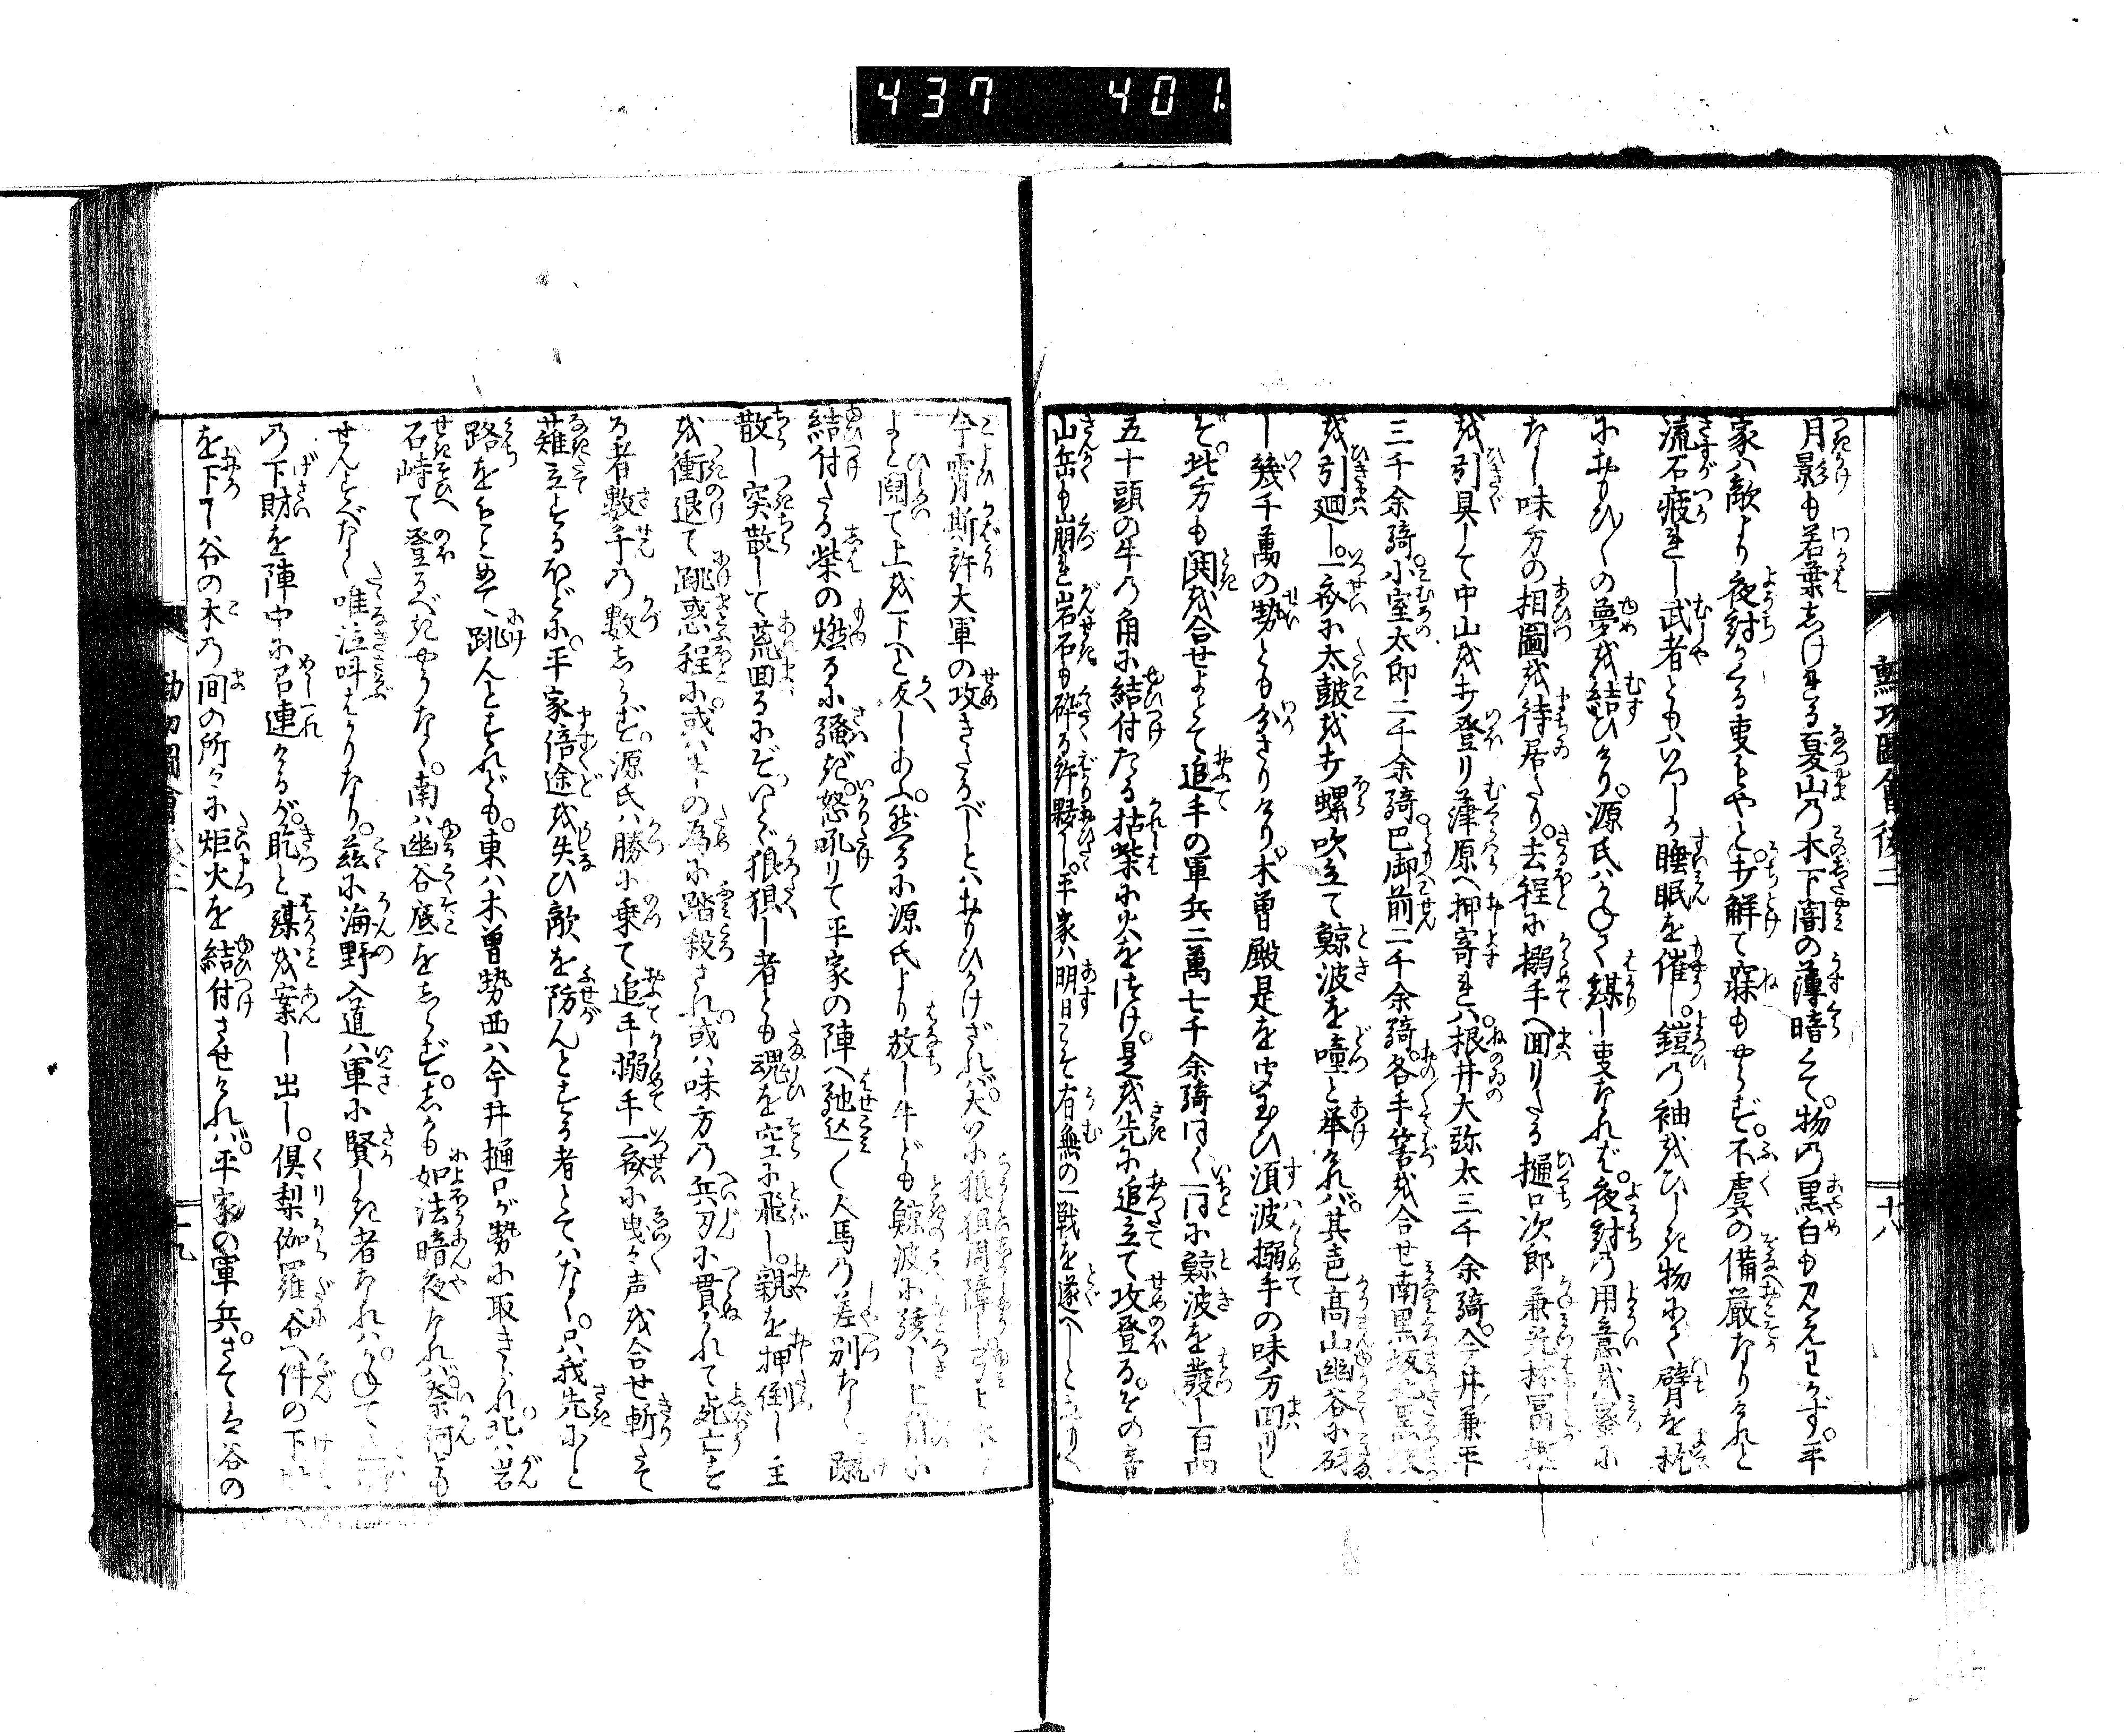 437 401
月影も若葉しげれる夏山の木下闇の薄暗くて。物の黒白も見えわかず。平
家ハ敵より夜討かくる事もやと。打解て寐もやらず。不虞の備厳なりけれど
流石疲れし武者ともハいつしか睡眠を催し。鎧の袖をひし物にて臂を
におもひ〳〵の夢を結びけり。源氏ハかねて謀し事なれバ。夜討の用意を密に
なし味方の相圖を待居たり。去程に搦手へ回りたる樋口次郎兼光
を引具して中山を打登り葎原へ押寄れバ。根井大弥太三千余騎。今井兼平
三千余騎。小室太郎二千余騎巴御前二千余騎。各手筈を合せ南黒坂北黒坂
を引廻し。一斉に太皷を打螺吹立て鯨波を噇と挙けれバ。其声高山幽谷に
し幾千萬の勢とも分ざりけり。木曽殿是を聞玉ひ須波搦手の味方回りし
ぞ。此方も鬨を合せよとて追手の軍兵二萬七千余騎同く一同に鯨波を發し
五十頭の牛の角に結付たる枯柴に火をつけ。是を先に追立て攻登る。その音
山岳も崩れ岩石も砕る許夥し。平家ハ明日こそ有無の一戦を遂べしと
勲功圖會後二
十八
今宵斯許大軍の攻きたるべしとハおもひかけざれバ。大いに狼狽周障し
よと鬩て上を下へと反しあへ。然るに源氏より放し牛ども鯨波に
結付たる柴の燃るに騒ぎ。怒吼りて平家の陣へ馳込〳〵人馬の差別なく
散し突散して荒回るにぞ。いとゞ狼狽し者とも魂を空に飛し。親を押倒し主
を衝退て跳惑程に。或ハ牛の為に踏殺され。或ハ味方の兵刃に貫かれて死亡す
る者數千の數しらず。源氏ハ勝に乗て追手搦手一斉に曳々声を合せ斬たて
薙立するほどに。平家倍途を失ひ敵を防んとする者とてハなく。只我先にと
路をもとめて跳んとすれども。東ハ木曽勢西ハ今井樋口が勢に取きられ。北ハ岩
石峙て登るべきやうなく。南ハ幽谷底をしらず。しかも如法暗夜なれバ。奈何とも
せんすべなく唯泣叫ばかりなり。茲に海野入道ハ軍に賢しき者なれバ。かねて
の下財を陣中に召連けるが。屹と謀を案し出し。倶梨伽羅谷へ件の下財
を下して谷の木の間の所々に炬火を結付させけれバ。平家の軍兵。さてこそ谷の